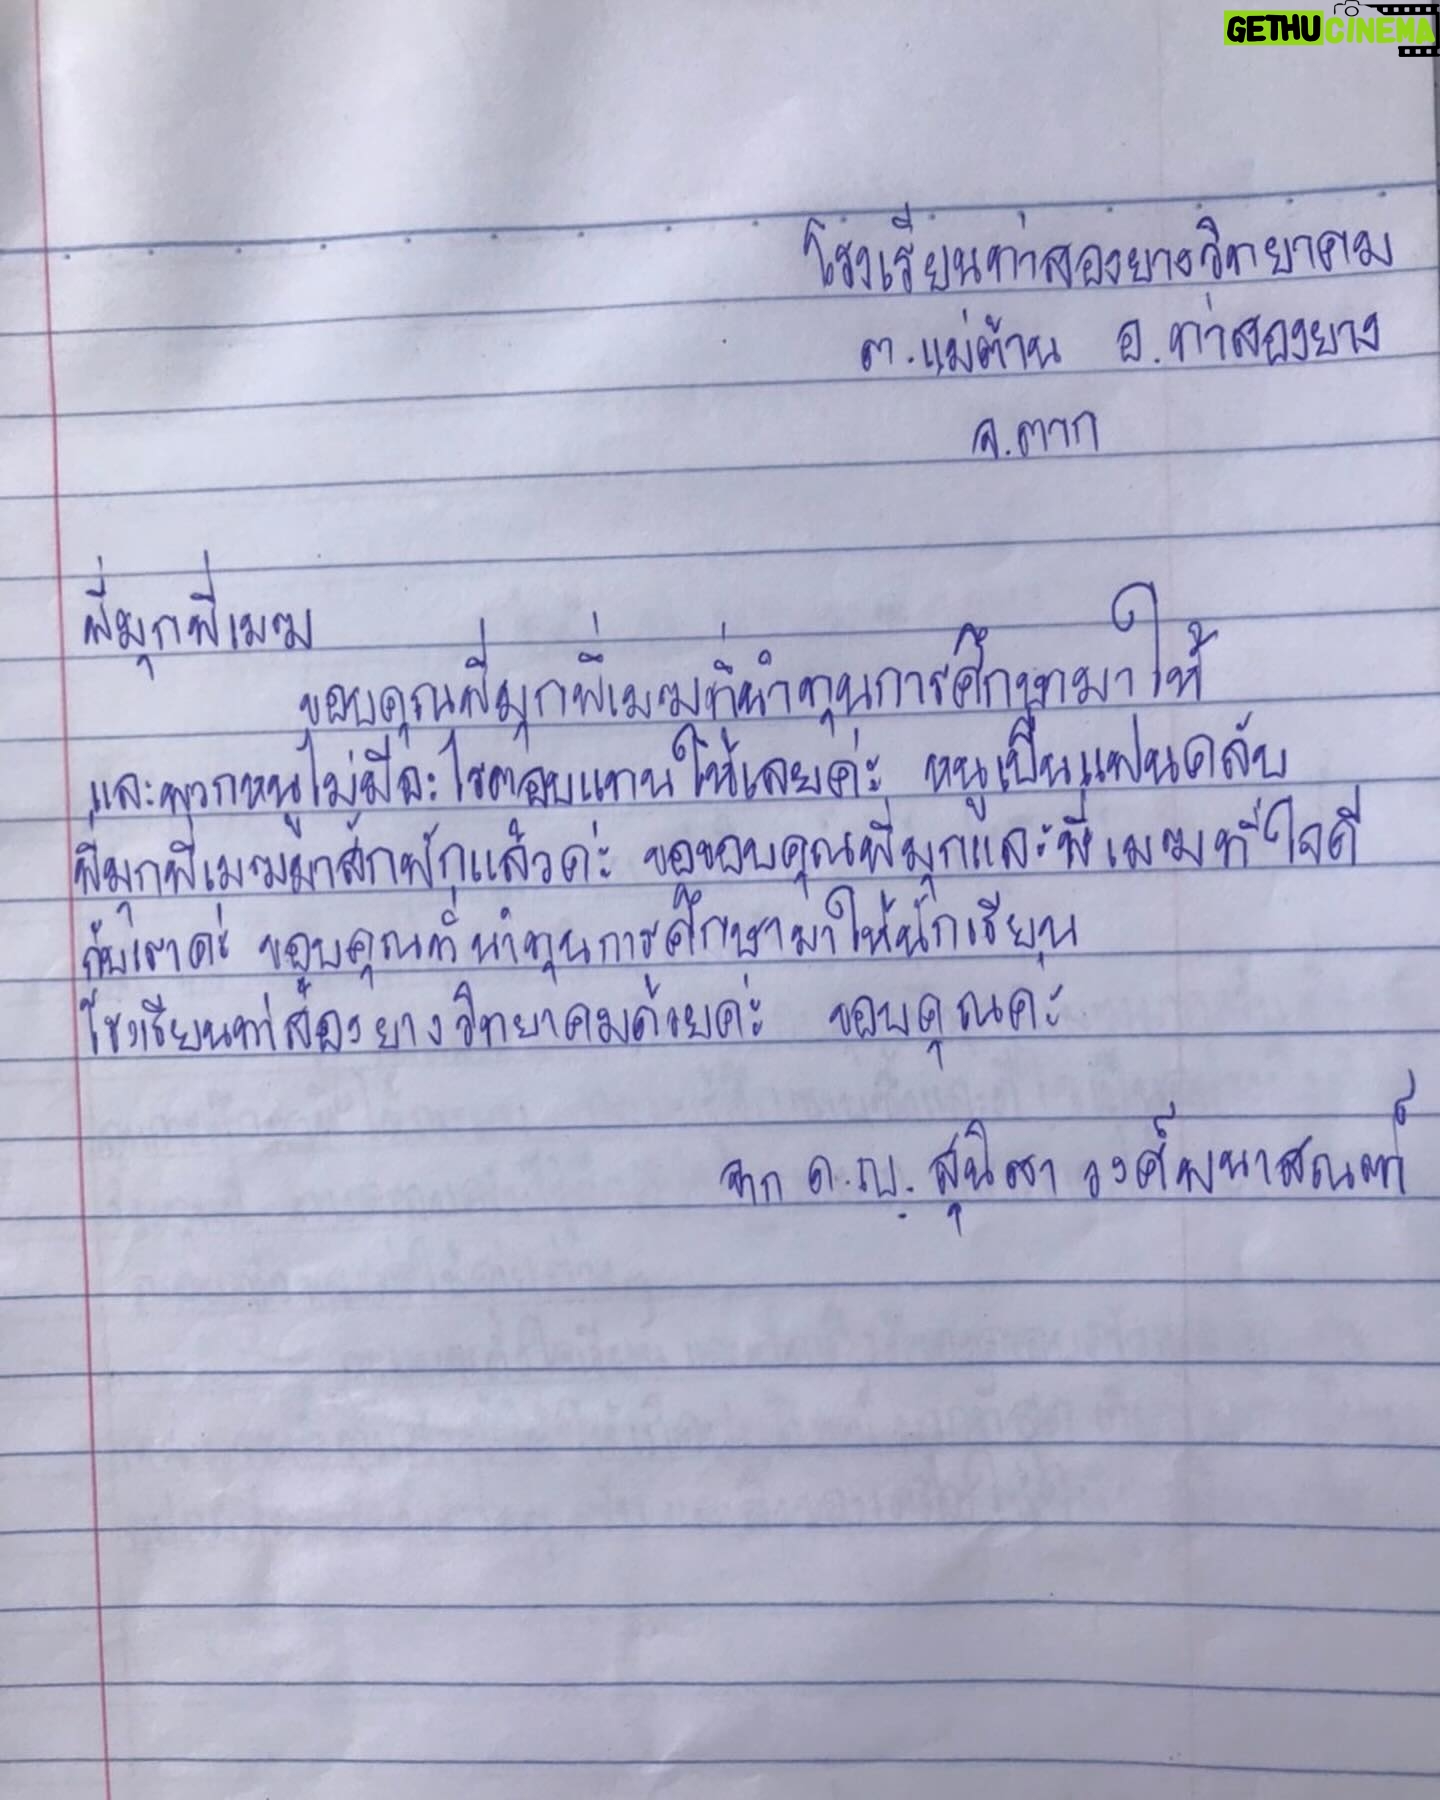 GETHUCINEMA
โรงเรียนท่าสองยางวิทยาคม
ต.แม่ต้าน อ.ท่าสองยาง
จ.ตาก
พี่มุกพี่เมฆ
ขอบคุณพี่มุกพี่เมฆที่นำทุนการศึกษามาให้
และพวกหนูไม่มีอะไรตอบแทนให้เลยค่ะ หนูเป็นแฟนคลับ
พี่มุกพี่เมฆมาสักพักแล้วค่ะ ขอขอบคุณพี่มุกและพี่เมฆที่ใจดี
กับเราค่ะ ขอบคุณที่นำทุนการศึกษามาให้นักเรียน
โรงเรียนท่าสองยางวิทยาคมด้วยค่ะ ขอบคุณคะ
จาก ด.ญ. สุนิสา วงศ์พนาสณฑ์